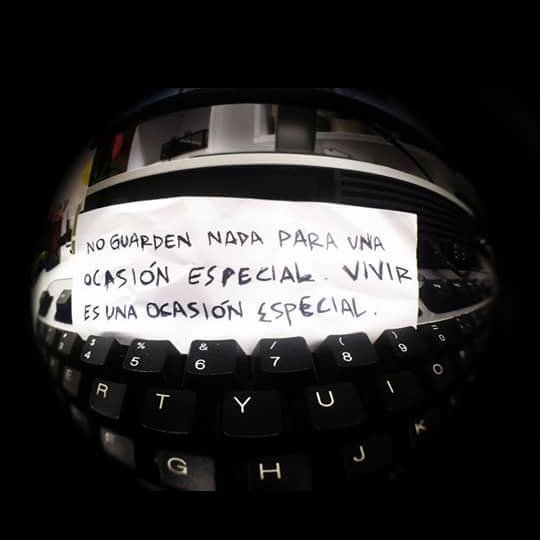 NO GUARDEN NADA PARA UNA
OCASIÓN ESPECIAL. VIVIR
ES UNA OCASIÓN ESPECIAL.
$ % & / ( ) =
4 5 6 7 8 9 0
R T Y U I O
G H J K